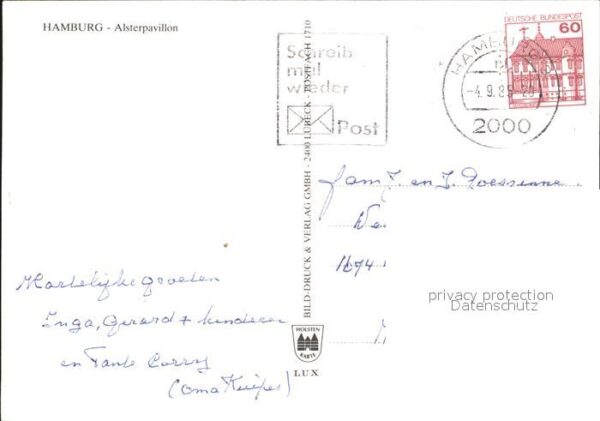 HAMBURG - Alsterpavillon
Schreib
mal
wieder
Post
HAMBURG
-4.9.89-20
2000
DEUTSCHE BUNDESPOST
60
BILD-DRUCK & VERLAG GMBH · 2400 LÜBECK · POSTFACH 1710
HOLSTEN
KARTE
LUX
Fam. J. en J.
1674
privacy protection
Datenschutz
Hartelijke groeten
Inga, Gerard + kinderen
en Tante Corry
(Oma Kuiper)